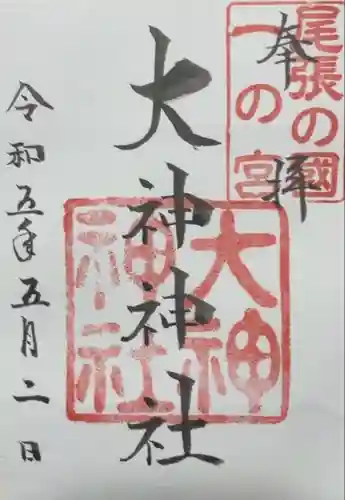 奉拝
尾張の國
一の宮
大神神社
大神
神社
令和五年五月二日